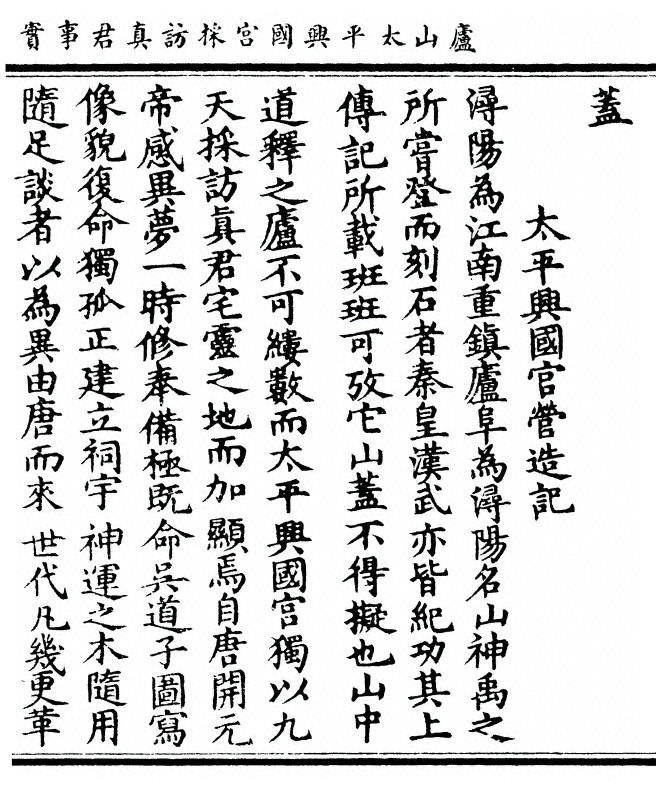 廬山太平興國宮採訪真君事實
蓋
太平興國宮營造記
潯陽為江南重鎮廬阜為潯陽名山神禹之
所嘗登而刻石者秦皇漢武亦皆紀功其上
傳記所載班班可攷它山蓋不得擬也山中
道釋之廬不可縷數而太平興國宮獨以九
天採訪真君宅靈之地而加顯焉自唐開元
帝感異夢一時修奉備極既命吳道子圖寫
像貌復命獨孤正建立祠宇神運之木隨用
隨足談者以為異由唐而來世代凡幾更革